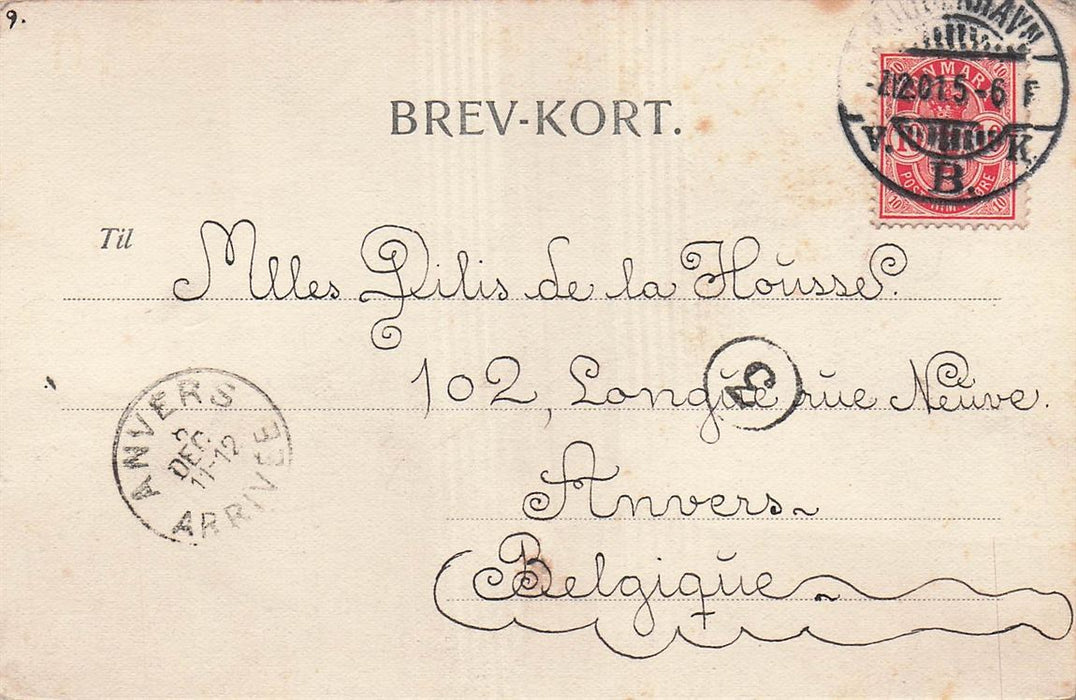 9.
KJØBENHAVN
-7.12.01.5-6 F
V. K.
B.
DANMARK
10 10
POSTFRIM. 10 ØRE
BREV-KORT.
Til
Mlles Dilis de la Housse.
102, Longue rue Neuve.
3
Anvers
Belgique
ANVERS
DEC
11-12
ARRIVÉE